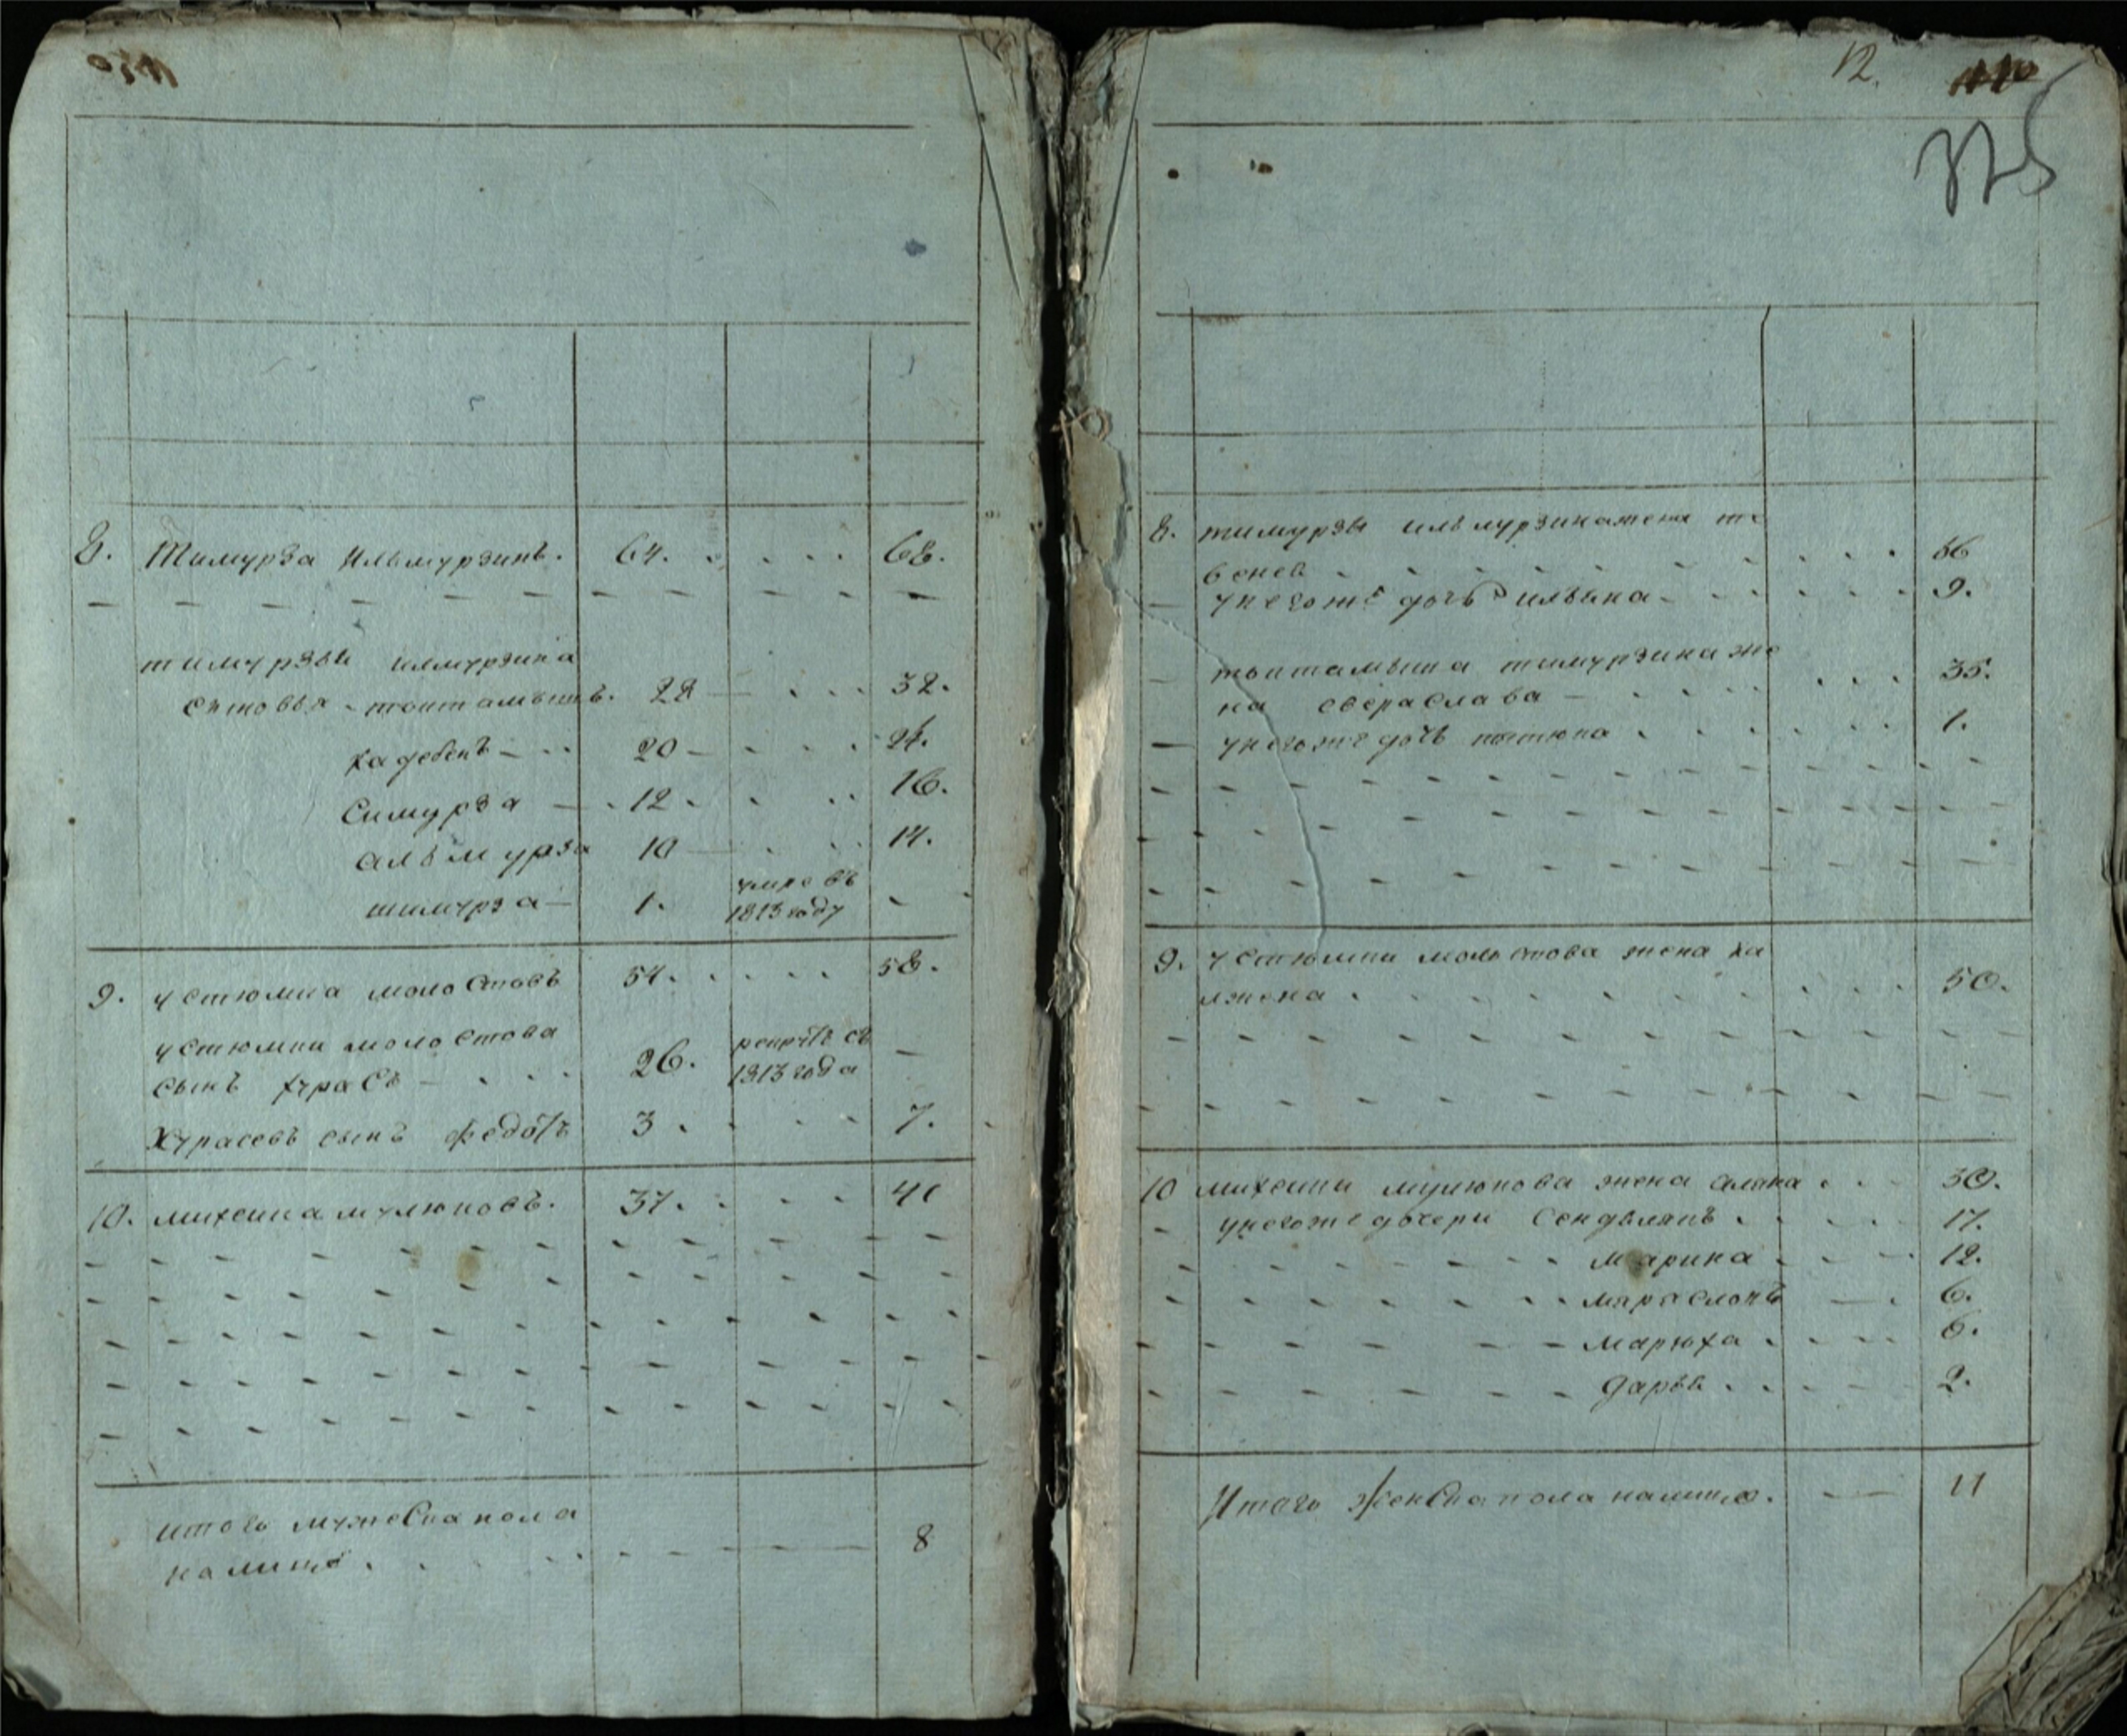 12.
325
8. Тимурза Ильмурзинъ. 64. 68.
тимурзы илмурзина
сыновья - тоитамышъ. 28 32.
хадебенъ 20 24.
Симурза 12. 16.
альмурза 10 14.
шимурза 1. умре въ
1813 году
9. устюмка молостовъ 54. 58.
устюмки молостова
сынъ хурасъ 26. рекрутъ съ
1813 года
Хурасевъ сынъ федотъ 3. 7.
10. михеика мулюковъ. 37. 41
итого мужеска пола
налицо 8
8. тимурзы ильмурзина жена те
бенев 56
у него же дочь Пильвика 9.
тоитамыша тимурзина же
на сверослава 35.
у него же дочь пытюка 1.
9. устюмки молостова жена ка
лжена 50.
10 михеики мулюкова жена алина 30.
у него же дочери Сендвлянъ 17.
марина 12.
мараслонъ 6.
марюха 6.
дарья 2.
Итого женска пола налицо. 11